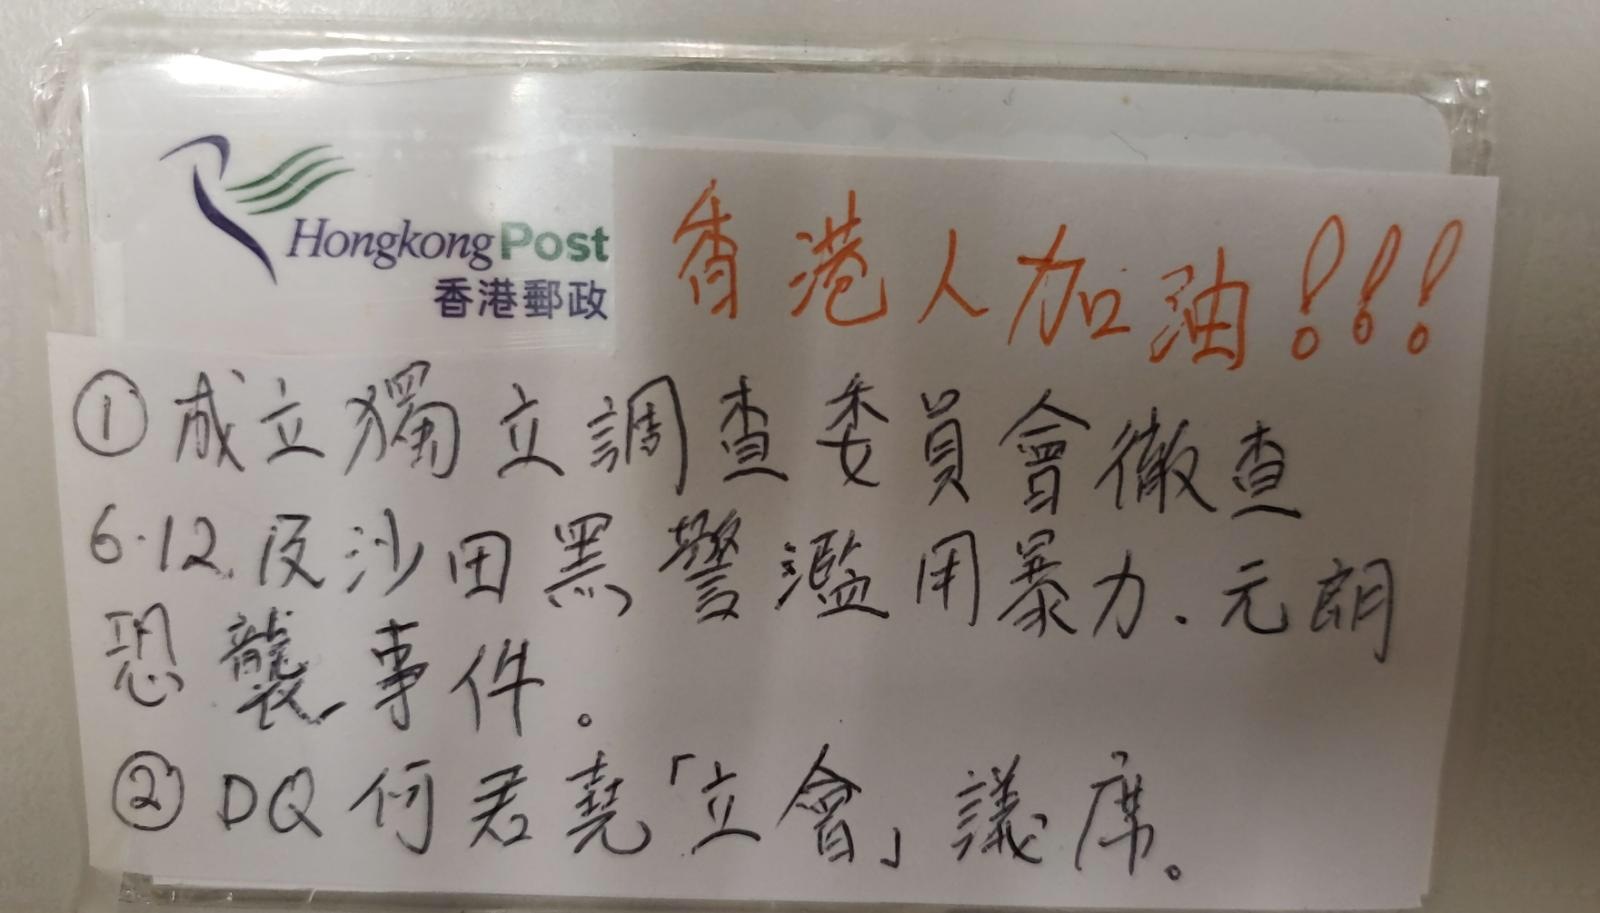 Hongkong Post
香港郵政
香港人加油!!!
①成立獨立調查委員會徹查
6·12及沙田黑警濫用暴力、元朗
恐襲事件。
②DQ何君堯「立會」議席。